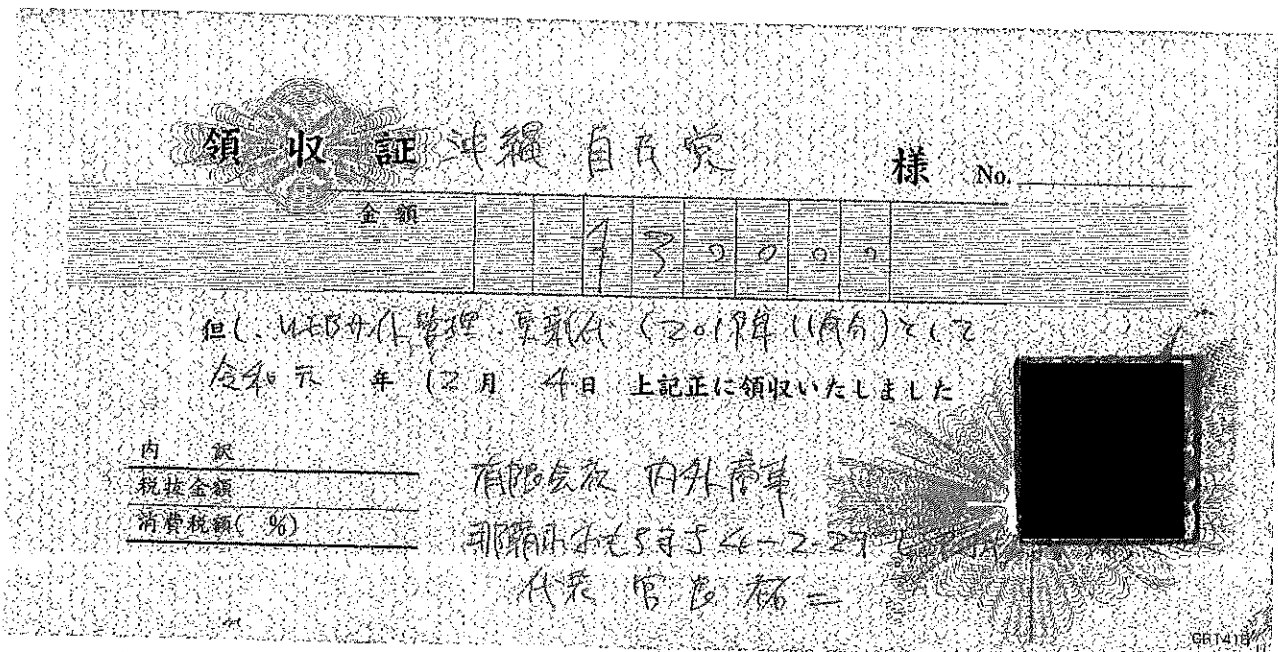 領収証 沖縄自民党 様 No.
金額 ¥30000
但し、WEBサイト管理・更新代(2019年11月分)として
令和元年12月4日 上記正に領収いたしました
内訳
税抜金額
消費税額( %)
有限会社 内外商事
那覇市
代表